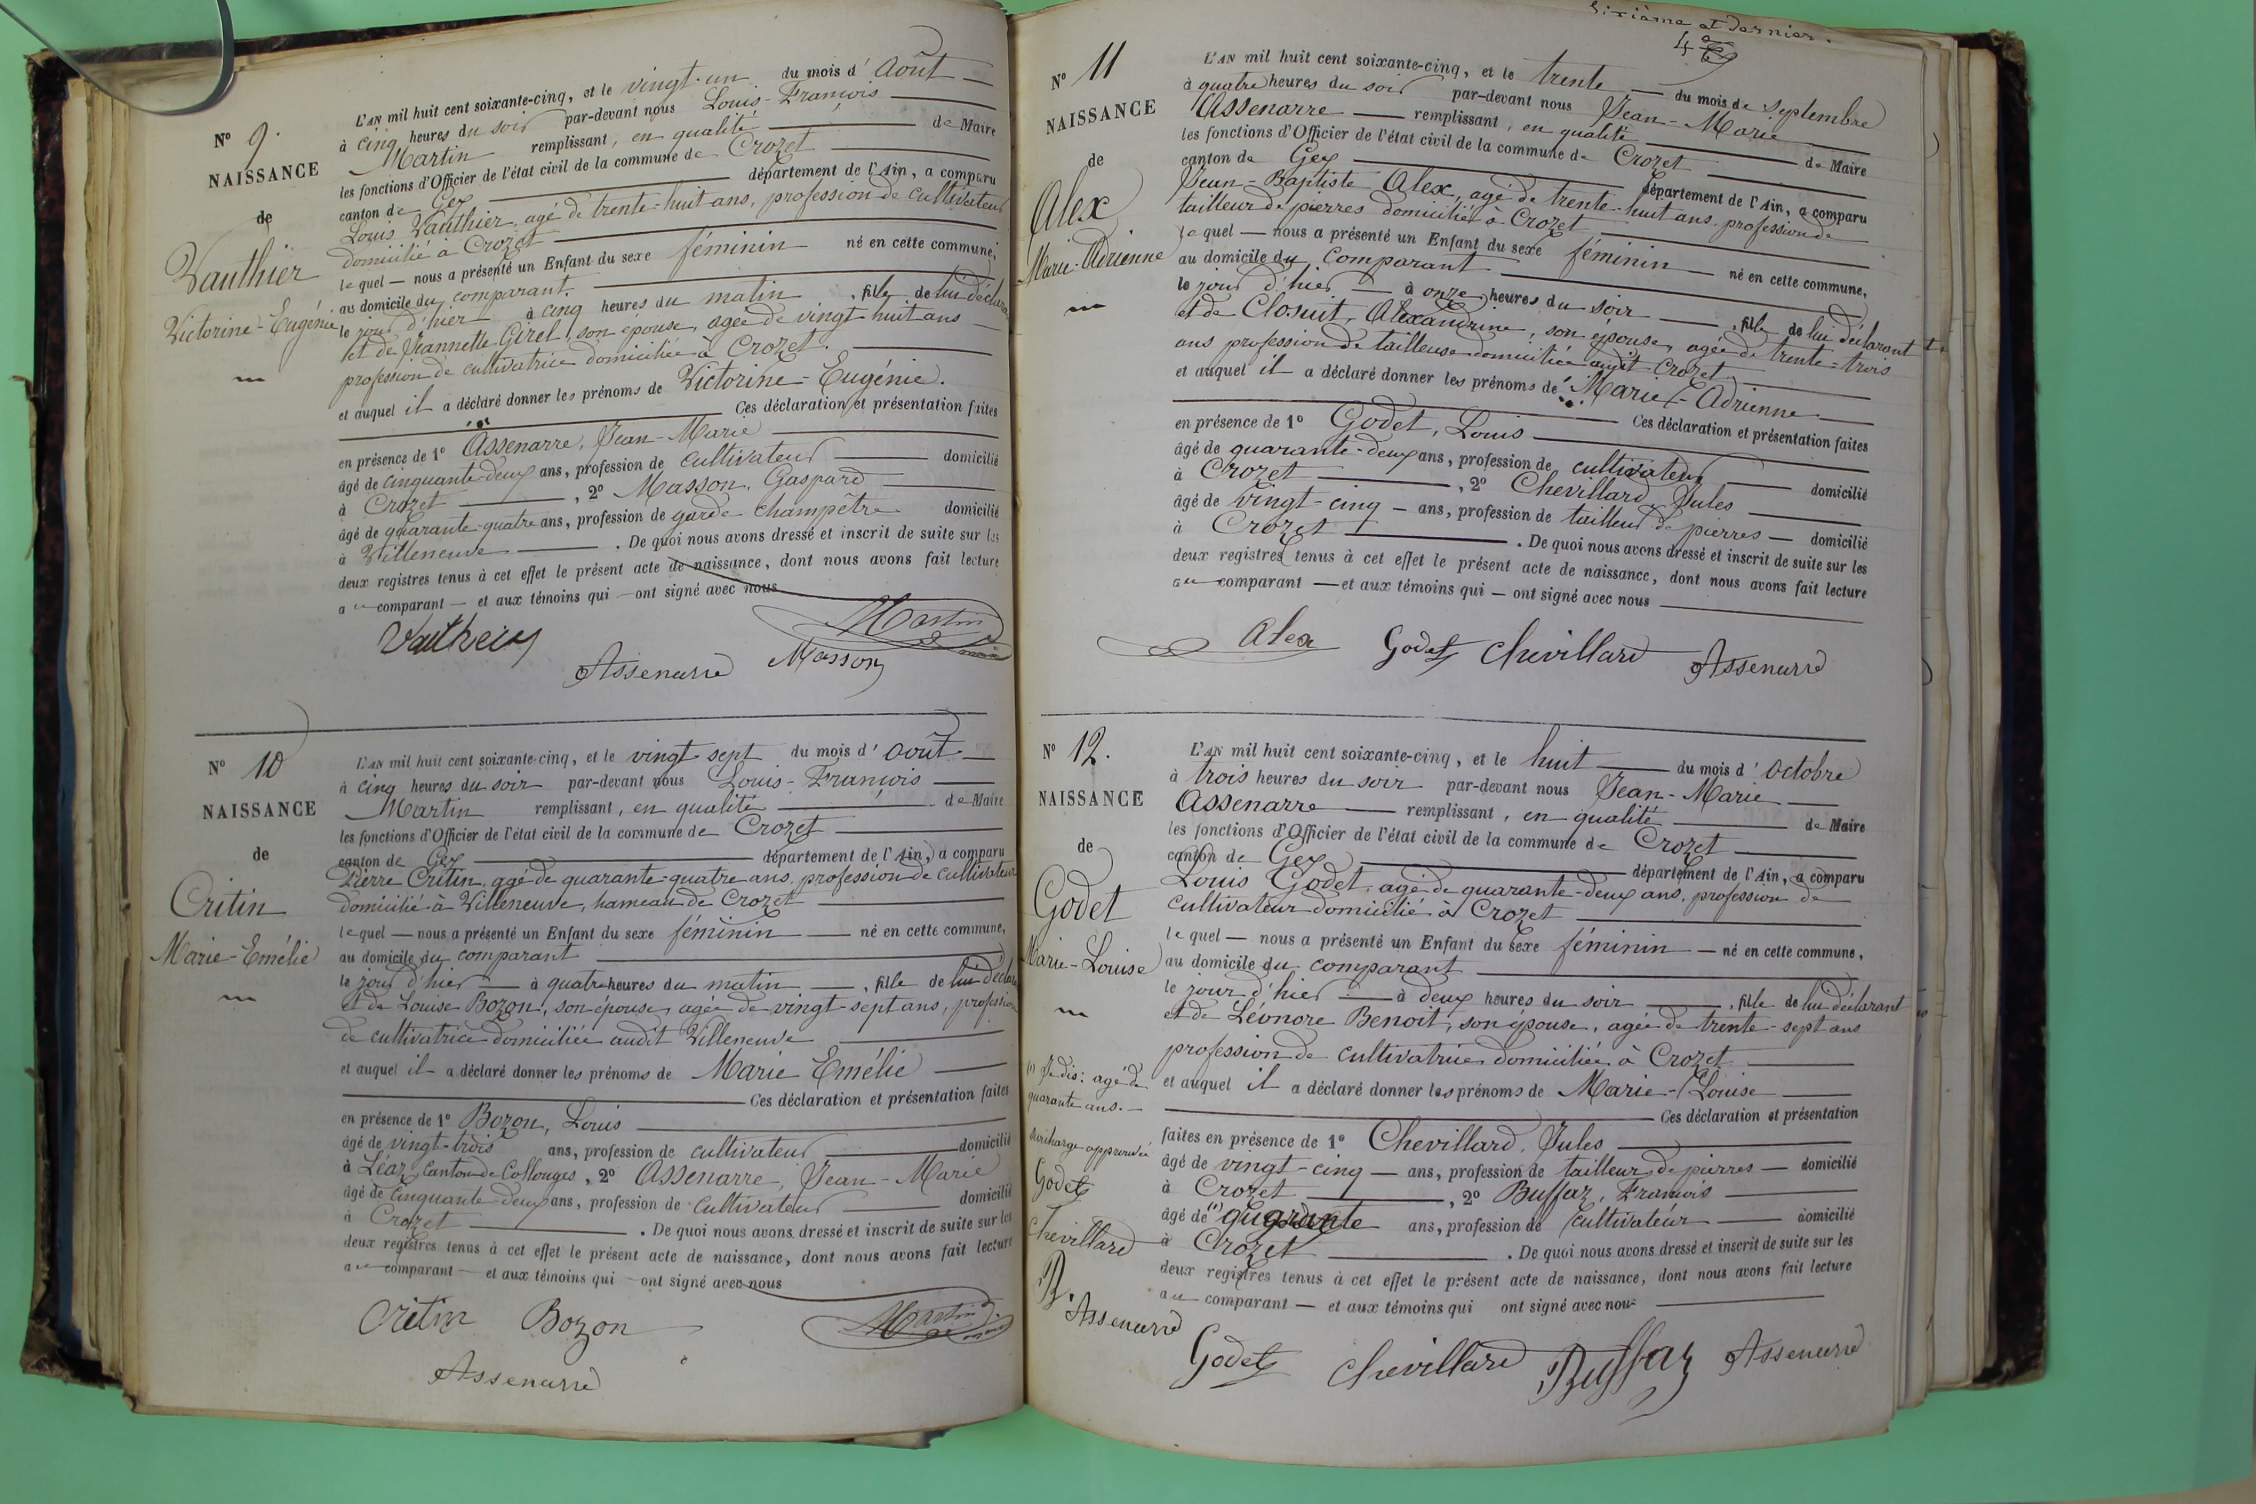 N° 9.
NAISSANCE
de
Vauthier
Victorine-Eugénie
L'AN mil huit cent soixante-cinq, et le vingt-un du mois d'Août
à cinq heures du soir par-devant nous Louis-François
Martin remplissant, en qualité de Maire
les fonctions d'Officier de l'état civil de la commune de Crozet
canton de Gex département de l'Ain, a comparu
Louis Vauthier, agé de trente-huit ans, profession de cultivateur
domicilié à Crozet
lequel nous a présenté un Enfant du sexe féminin né en cette commune,
au domicile du comparant.
le jour d'hier à cinq heures du matin, fille de lui déclarant
et de Jeannette Girel, son épouse, agée de vingt-huit ans
profession de cultivatrice domiciliée à Crozet.
et auquel il a déclaré donner les prénoms de Victorine-Eugénie.
Ces déclaration et présentation faites
en présence de 1° Assenarre, Jean-Marie
âgé de cinquante-deux ans, profession de cultivateur domicilié
à Crozet, 2° Masson, Gaspard
âgé de quarante-quatre ans, profession de garde champêtre domicilié
à Villeneuve. De quoi nous avons dressé et inscrit de suite sur les
deux registres tenus à cet effet le présent acte de naissance, dont nous avons fait lecture
au comparant et aux témoins qui ont signé avec nous
Martin
maire
Assenarre Masson
N° 10
NAISSANCE
de
Critin
Marie-Emélie
L'AN mil huit cent soixante-cinq, et le vingt sept du mois d'août
à cinq heures du soir par-devant nous Louis-François
Martin remplissant, en qualité de Maire
les fonctions d'Officier de l'état civil de la commune de Crozet
canton de Gex département de l'Ain, a comparu
Pierre Critin, agé de quarante-quatre ans, profession de cultivateur
domicilié à Villeneuve, hameau de Crozet
lequel nous a présenté un Enfant du sexe féminin né en cette commune,
au domicile du comparant
le jour d'hier à quatre heures du matin, fille de lui déclarant
et de Louise Bozon, son épouse, agée de vingt-sept ans, profession
de cultivatrice domiciliée audit Villeneuve
et auquel il a déclaré donner les prénoms de Marie Emélie
Ces déclaration et présentation faites
en présence de 1° Bozon, Louis
âgé de vingt-trois ans, profession de cultivateur domicilié
à Léaz, canton de Collonges, 2° Assenarre, Jean-Marie
âgé de cinquante-deux ans, profession de cultivateur domicilié
à Crozet. De quoi nous avons dressé et inscrit de suite sur les
deux registres tenus à cet effet le présent acte de naissance, dont nous avons fait lecture
au comparant et aux témoins qui ont signé avec nous
Critin Bozon Martin
maire
Assenarre
Sixième et dernier.
N° 11
NAISSANCE
de
Alex
Marie-Adrienne
L'AN mil huit cent soixante-cinq, et le trente du mois de septembre
à quatre heures du soir par-devant nous Jean-Marie
Assenarre remplissant, en qualité de Maire
les fonctions d'Officier de l'état civil de la commune de Crozet
canton de Gex département de l'Ain, a comparu
Jean-Baptiste Alex, agé de trente-huit ans, profession de
tailleur de pierres domicilié à Crozet
lequel nous a présenté un Enfant du sexe féminin né en cette commune,
au domicile du comparant
le jour d'hier à onze heures du soir, fille de lui déclarant
et de Closuit, Alexandrine, son épouse, agée de trente-trois
ans profession de tailleuse domiciliée audit Crozet.
et auquel il a déclaré donner les prénoms de Marie-Adrienne
Ces déclaration et présentation faites
en présence de 1° Godet, Louis
âgé de quarante-deux ans, profession de cultivateur domicilié
à Crozet, 2° Chevillard, Jules
âgé de vingt-cinq ans, profession de tailleur de pierres domicilié
à Crozet. De quoi nous avons dressé et inscrit de suite sur les
deux registres tenus à cet effet le présent acte de naissance, dont nous avons fait lecture
au comparant et aux témoins qui ont signé avec nous
Alex Godet Chevillard Assenarre
N° 12.
NAISSANCE
de
Godet
Marie-Louise
(1) Je dis: agé de
quarante ans.
surcharge approuvée
Godet
Chevillard
B.
Assenarre
L'AN mil huit cent soixante-cinq, et le huit du mois d'octobre
à trois heures du soir par-devant nous Jean-Marie
Assenarre remplissant, en qualité de Maire
les fonctions d'Officier de l'état civil de la commune de Crozet
canton de Gex département de l'Ain, a comparu
Louis Godet, agé de quarante-deux ans, profession de
cultivateur domicilié à Crozet
lequel nous a présenté un Enfant du sexe féminin né en cette commune,
au domicile du comparant
le jour d'hier à deux heures du soir, fille de lui déclarant
et de Léonore Benoit, son épouse, agée de trente-sept ans
profession de cultivatrice domiciliée à Crozet
et auquel il a déclaré donner les prénoms de Marie-Louise
Ces déclaration et présentation
faites en présence de 1° Chevillard, Jules
âgé de vingt-cinq ans, profession de tailleur de pierres domicilié
à Crozet, 2° Buffaz, François
âgé de (1) quarante ans, profession de cultivateur domicilié
à Crozet. De quoi nous avons dressé et inscrit de suite sur les
deux registres tenus à cet effet le présent acte de naissance, dont nous avons fait lecture
au comparant et aux témoins qui ont signé avec nous
Godet Chevillard Buffaz Assenarre